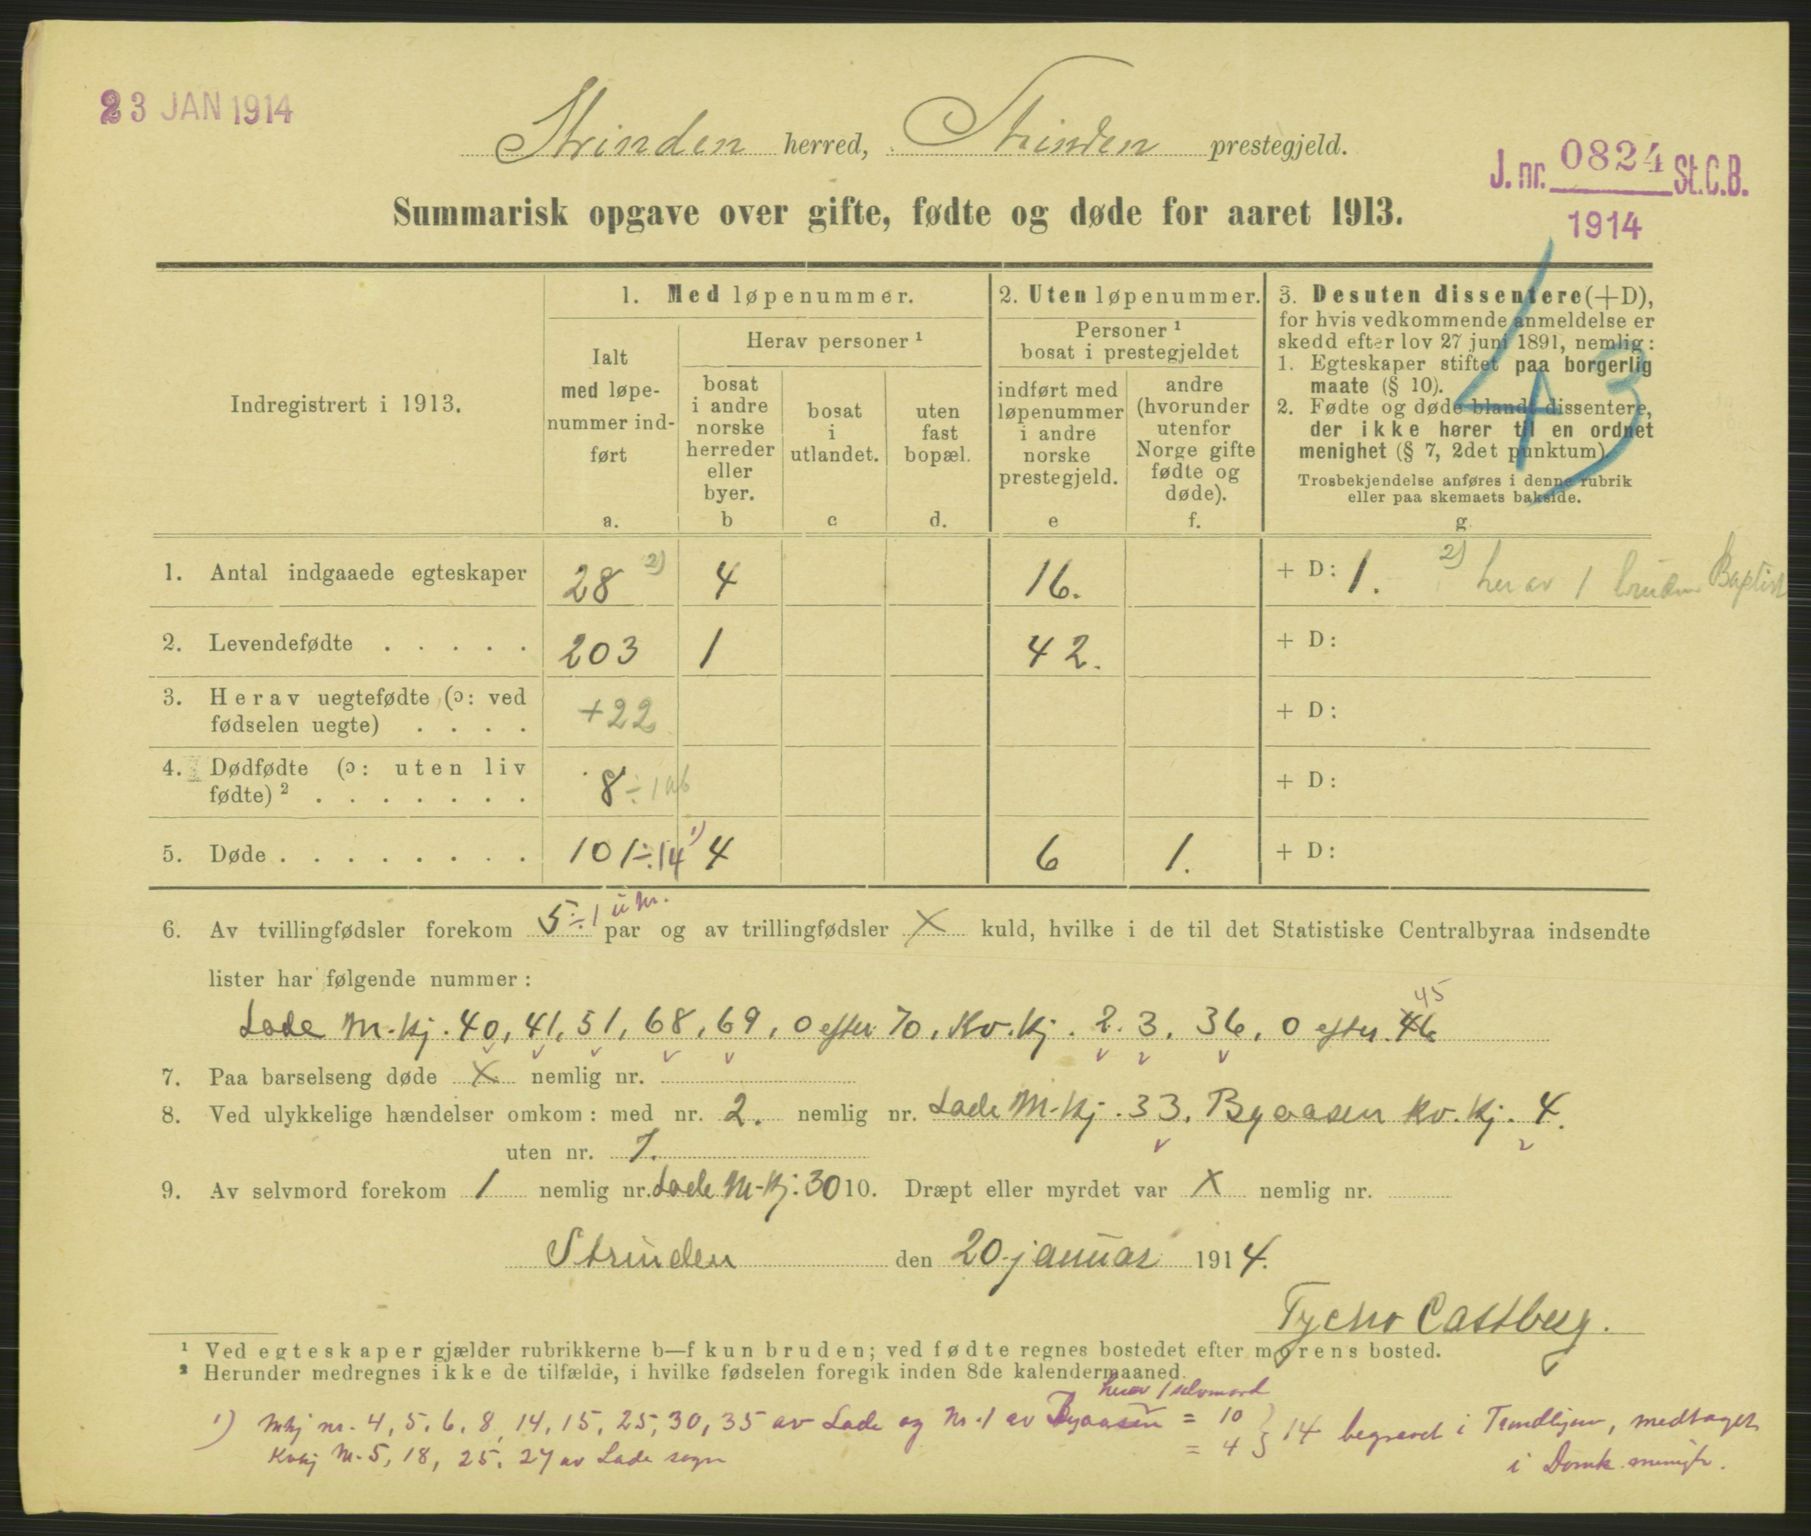 23 JAN 1914
Strinden herred, Strinden prestegjeld.
J. nr. 0824 St.C.B.
1914
Summarisk opgave over gifte, fødte og døde for aaret 1913.
43
Indregistrert i 1913.
1. Med løpenummer.
Ialt med løpenummer indført
a.
Herav personer ¹
bosat i andre norske herreder eller byer.
b
bosat i utlandet.
c
uten fast bopæl.
d.
2. Uten løpenummer.
Personer ¹ bosat i prestegjeldet
indført med løpenummer i andre norske prestegjeld.
e
andre (hvorunder utenfor Norge gifte fødte og døde).
f.
3. Desuten dissentere (+D),
for hvis vedkommende anmeldelse er
skedd efter lov 27 juni 1891, nemlig:
1. Egteskaper stiftet paa borgerlig
maate (§ 10).
2. Fødte og døde blandt dissentere,
der ikke hører til en ordnet
menighet (§ 7, 2det punktum).
Trosbekjendelse anføres i denne rubrik
eller paa skemaets bakside.
g.
1. Antal indgaaede egteskaper 28 2) 4 16. + D: 1. 2) herav 1 brudem Baptist
2. Levendefødte . . . . . 203 1 42. + D:
3. Herav uegtefødte (ɔ: ved
fødselen uegte) . . . . +22 + D:
4. Dødfødte (ɔ: uten liv
fødte) ² . . . . . . . 8 ÷ 1 ab + D:
5. Døde . . . . . . . . 101 ÷ 14 1) 4 6 1. + D:
6. Av tvillingfødsler forekom 5 ÷ 1 u nr. par og av trillingfødsler X kuld, hvilke i de til det Statistiske Centralbyraa indsendte
lister har følgende nummer:
Lade M.kj. 40, 41, 51, 68, 69, 0 efter 70, Kv.kj. 2. 3. 36, 0 efter 46 45
7. Paa barselseng døde X nemlig nr.
8. Ved ulykkelige hændelser omkom: med nr. 2. nemlig nr. Lade M.kj. 33. Byaasen Kv.kj. 4.
uten nr. 7.
9. Av selvmord forekom 1 nemlig nr. Lade M.kj. 30 10. Dræpt eller myrdet var X nemlig nr.
Strinden den 20. januar 1914.
Tycho Castberg.
¹ Ved egteskaper gjælder rubrikkerne b—f kun bruden; ved fødte regnes bostedet efter morens bosted.
² Herunder medregnes ikke de tilfælde, i hvilke fødselen foregik inden 8de kalendermaaned.
herav 1 selvmord
1) Mkj nr. 4, 5, 6, 8, 14, 15, 25, 30, 35 av Lade og Nr. 1 av Byaasen = 10 } 14 begravet i Trondhjem, medtaget
Kvkj Nr. 5, 18, 25, 27 av Lade sogn = 4 i Domk. menigh.